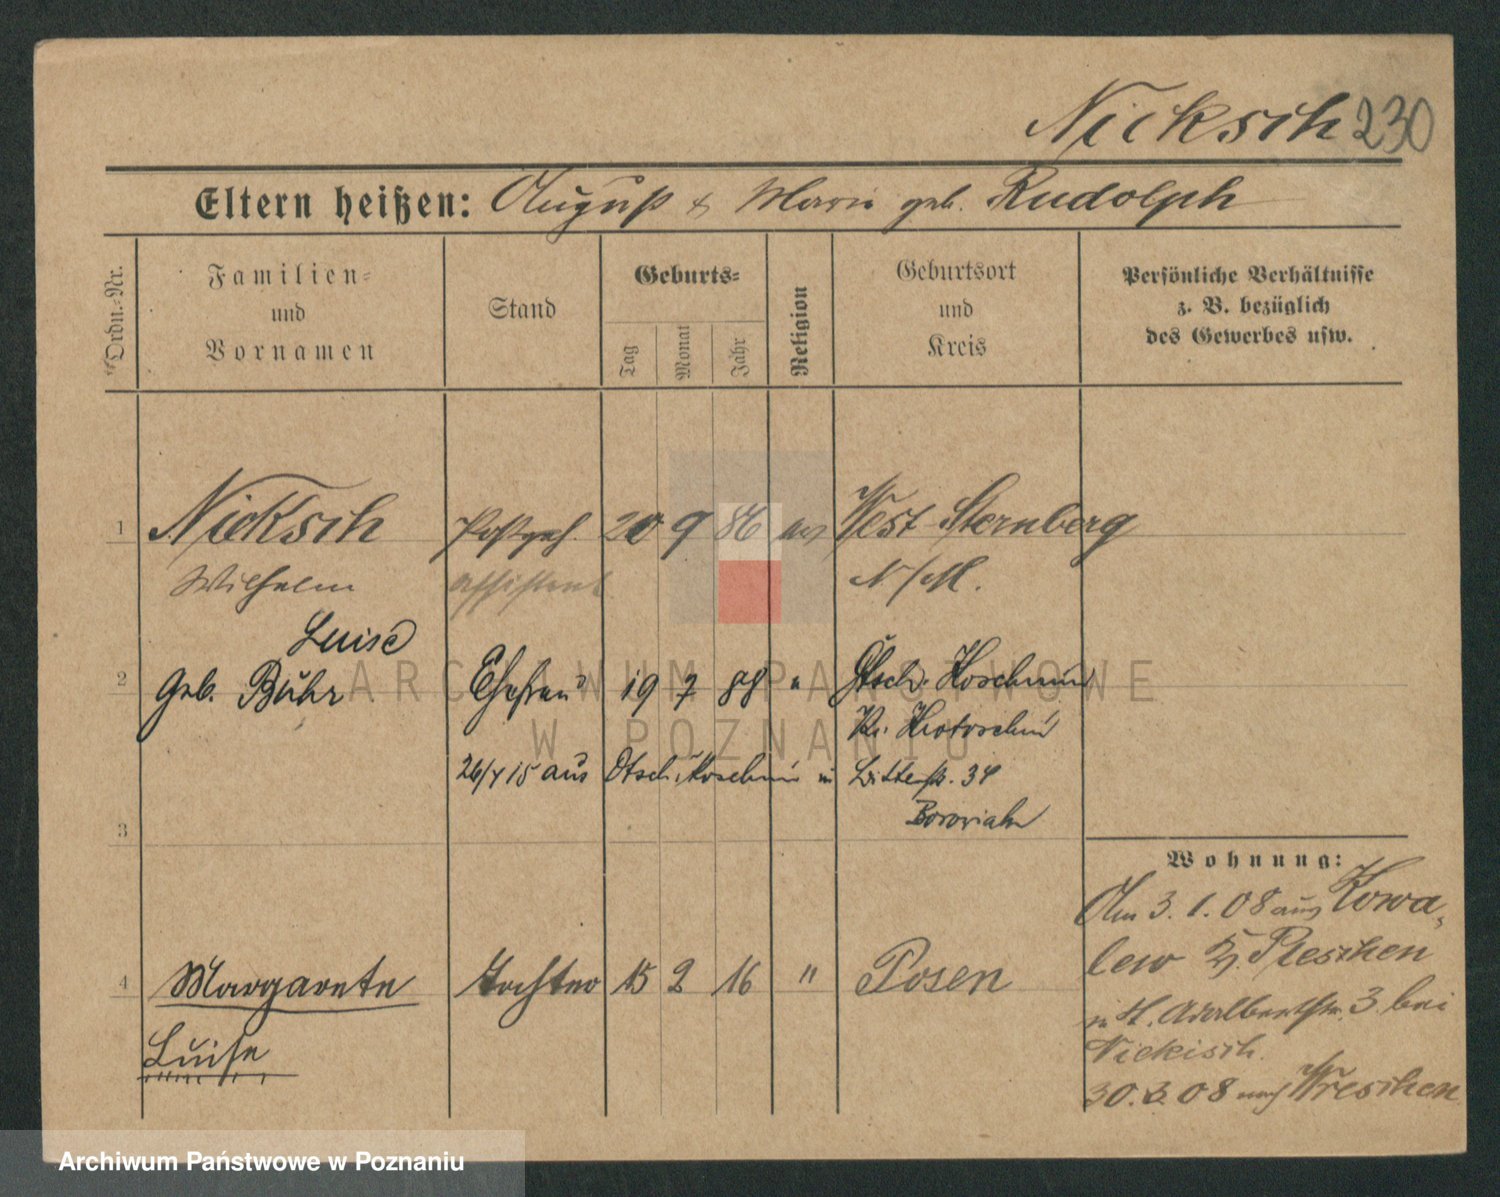 Nicksch 230
Eltern heißen: August & Marie geb. Rudolph
Ordn.-Nr.
Familien- und Vornamen
Stand
Geburts-
Tag
Monat
Jahr
Religion
Geburtsort und Kreis
Persönliche Verhältnisse
z. B. bezüglich
des Gewerbes usw.
1 Nicksch Postgeh. 20 9 86 ev West Sternberg
Wilhelm assistent N/M.
Luise
2 geb. Bühr Ehefrau 19 7 88 " Dtsch. Koschmin
Kr. Krotoschin
26/4 15 aus Dtsch. Koschmin in Litterstr. 34
3
Wohnung:
Am 3.1.08 aus Kowa-
lew Kr. Pleschen
in St. Adalbertstr. 3 bei
Nickisch.
30.3.08 nach Wreschen
4 Margarete Tochter 15 2 16 " Posen
Luise
ARCHIWUM PAŃSTWOWE
W POZNANIU
Archiwum Państwowe w Poznaniu